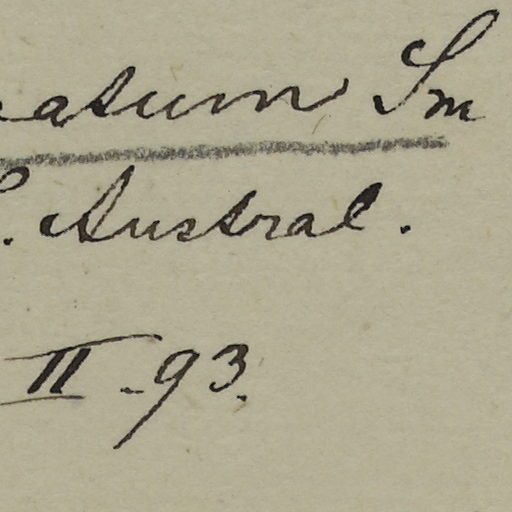 atum Sm
. Austral.
II-93.